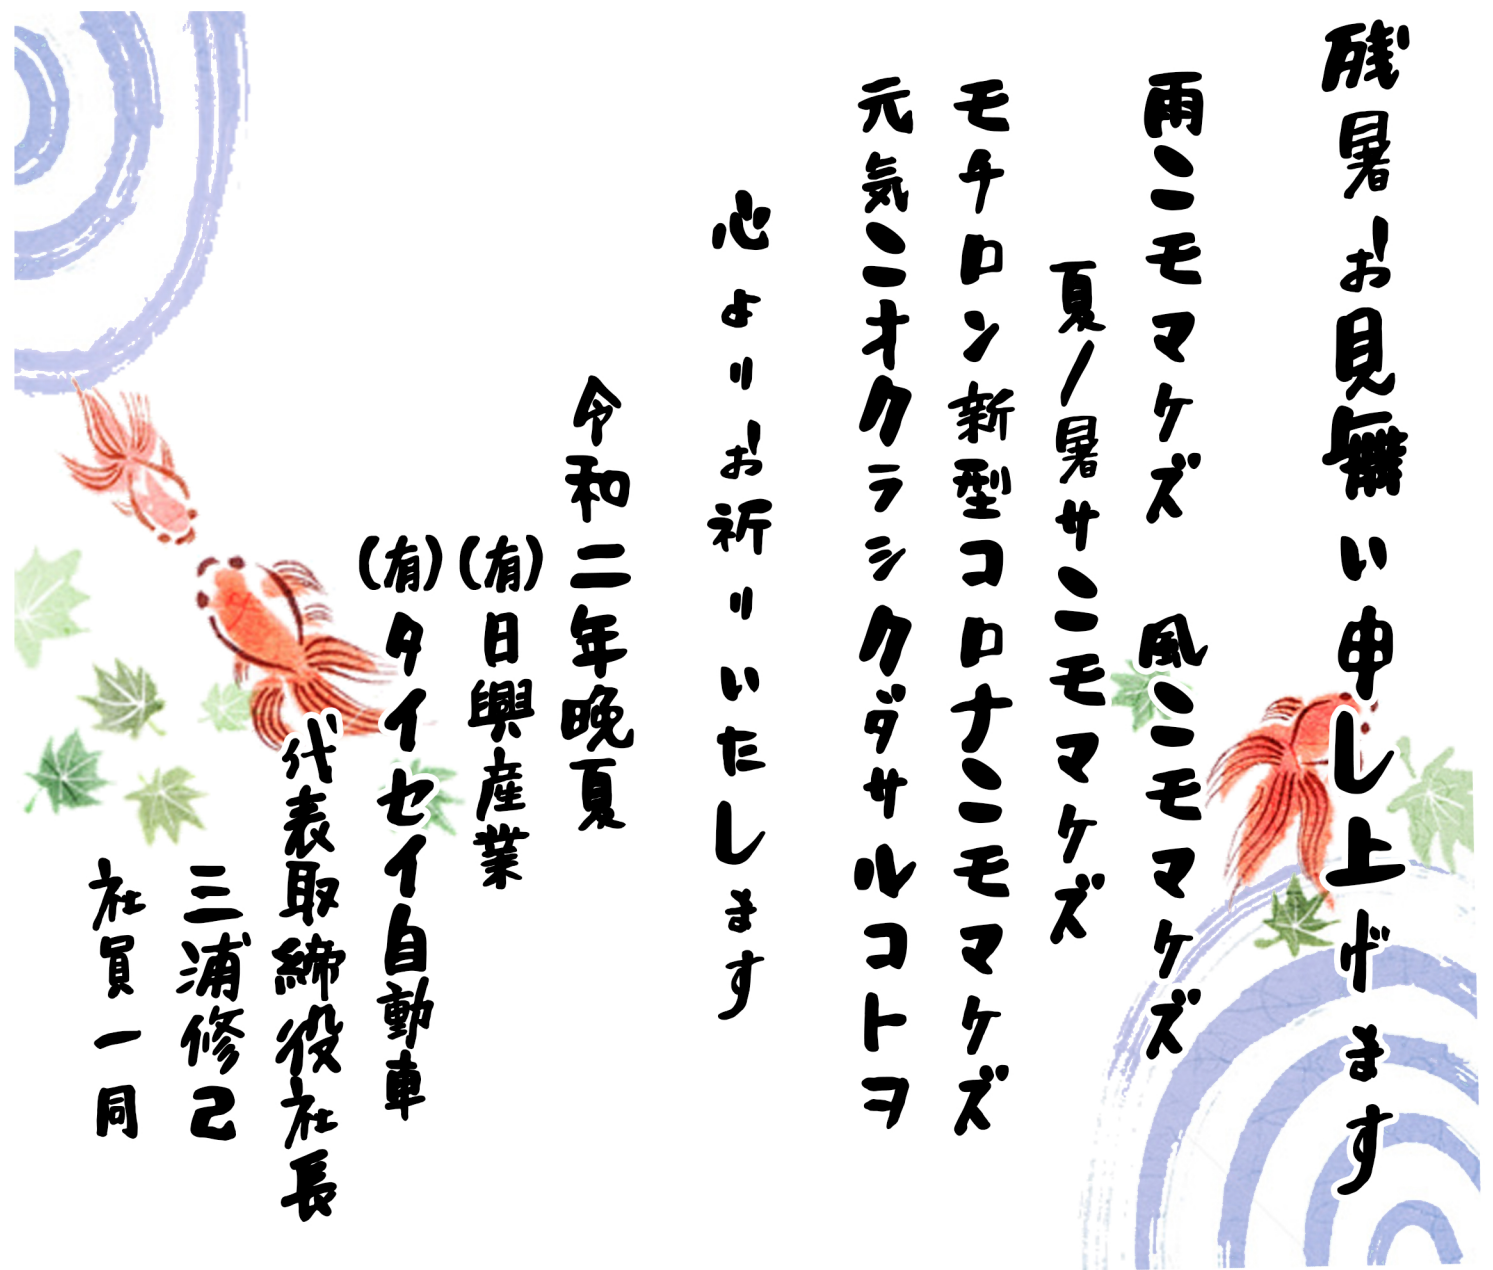 残暑お見舞い申し上げます
雨ニモマケズ 風ニモマケズ
夏ノ暑サニモマケズ
モチロン新型コロナニモマケズ
元気ニオクラシクダサルコトヲ
心よりお祈りいたします
令和二年晩夏
(有)日興産業
(有)タイセイ自動車
代表取締役社長
三浦修己
社員一同